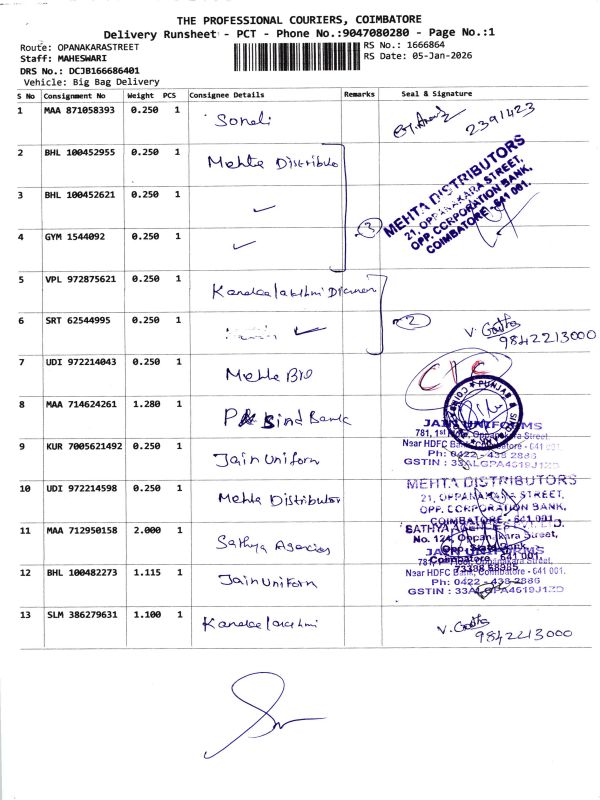 THE PROFESSIONAL COURIERS, COIMBATORE
Delivery Runsheet - PCT - Phone No.:9047080280 - Page No.:1
Route: OPANAKARASTREET
RS No.: 1666864
Staff: MAHESWARI
RS Date: 05-Jan-2026
DRS No.: DCJB166686401
Vehicle: Big Bag Delivery
S No Consignment No Weight PCS Consignee Details Remarks Seal & Signature
1 MAA 871058393 0.250 1 Sonali 2391423
2 BHL 100452955 0.250 1 Mehta Distributo
3 BHL 100452621 0.250 1 ✓
4 GYM 1544092 0.250 1 ✓ 3
MEHTA DISTRIBUTORS
21, OPPANAKARA STREET,
OPP. CORPORATION BANK,
COIMBATORE - 641 001.
5 VPL 972875621 0.250 1
6 SRT 62544995 0.250 1 ✓ 2 V. Geetha
9842213000
7 UDI 972214043 0.250 1 Mehta
8 MAA 714624261 1.280 1 P & Sind Bank
PUNJAB & SIND
9 KUR 7005621492 0.250 1 Jain Uniform
JAIN UNIFORMS
781, 1st Floor, Oppanakara Street,
Near HDFC Bank, Coimbatore - 641 001.
Ph: 0422 - 438 2886
GSTIN : 33ALGPA4619J1ZD
10 UDI 972214598 0.250 1 Mehta Distributor
MEHTA DISTRIBUTORS
21, OPPANAKARA STREET,
OPP. CORPORATION BANK,
COIMBATORE - 641 001.
11 MAA 712950158 2.000 1 Sathya Agencies
SATHYA AGENCIES LTD.
No. 124, Oppanakara Street,
Coimbatore - 641 001.
12 BHL 100482273 1.115 1 Jain Uniform
JAIN UNIFORMS
Near HDFC Bank, Coimbatore - 641 001.
Ph: 0422 - 438 2886
GSTIN : 33ALGPA4619J1ZD
13 SLM 386279631 1.100 1 Kanakalakshmi V. Geetha
9842213000